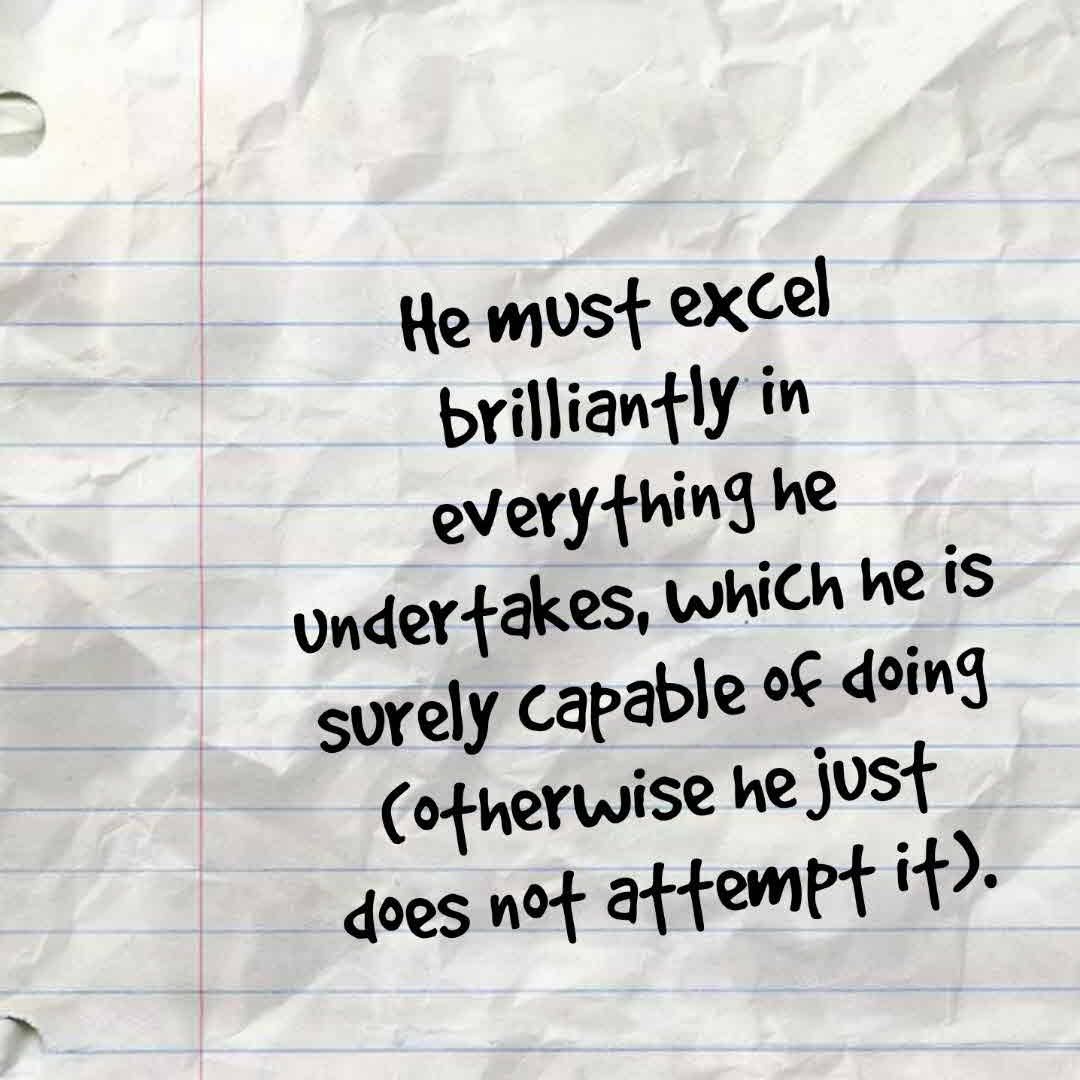 He must excel
brilliantly in
everything he
undertakes, which he is
surely capable of doing
(otherwise he just
does not attempt it).